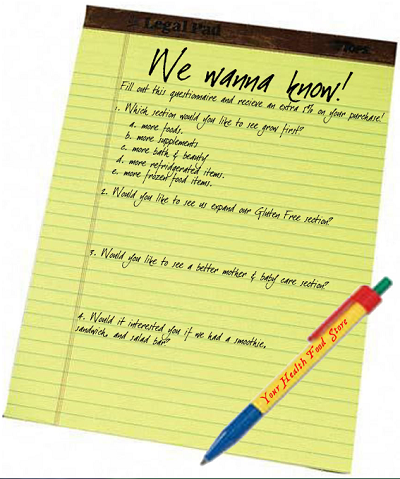 Legal Pad
We wanna know!
Fill out this questionnaire and recieve an extra 5% on your purchase!
1. Which section would you like to see grow first?
a. more foods.
b. more supplements
c. more bath & beauty
d. more refridgerated items.
e. more frozen food items.
2. Would you like to see us expand our Gluten Free section?
3. Would you like to see a better mother & baby care section?
4. Would it interested you if we had a smoothie,
sandwich, and salad bar?
Your Health Food Store